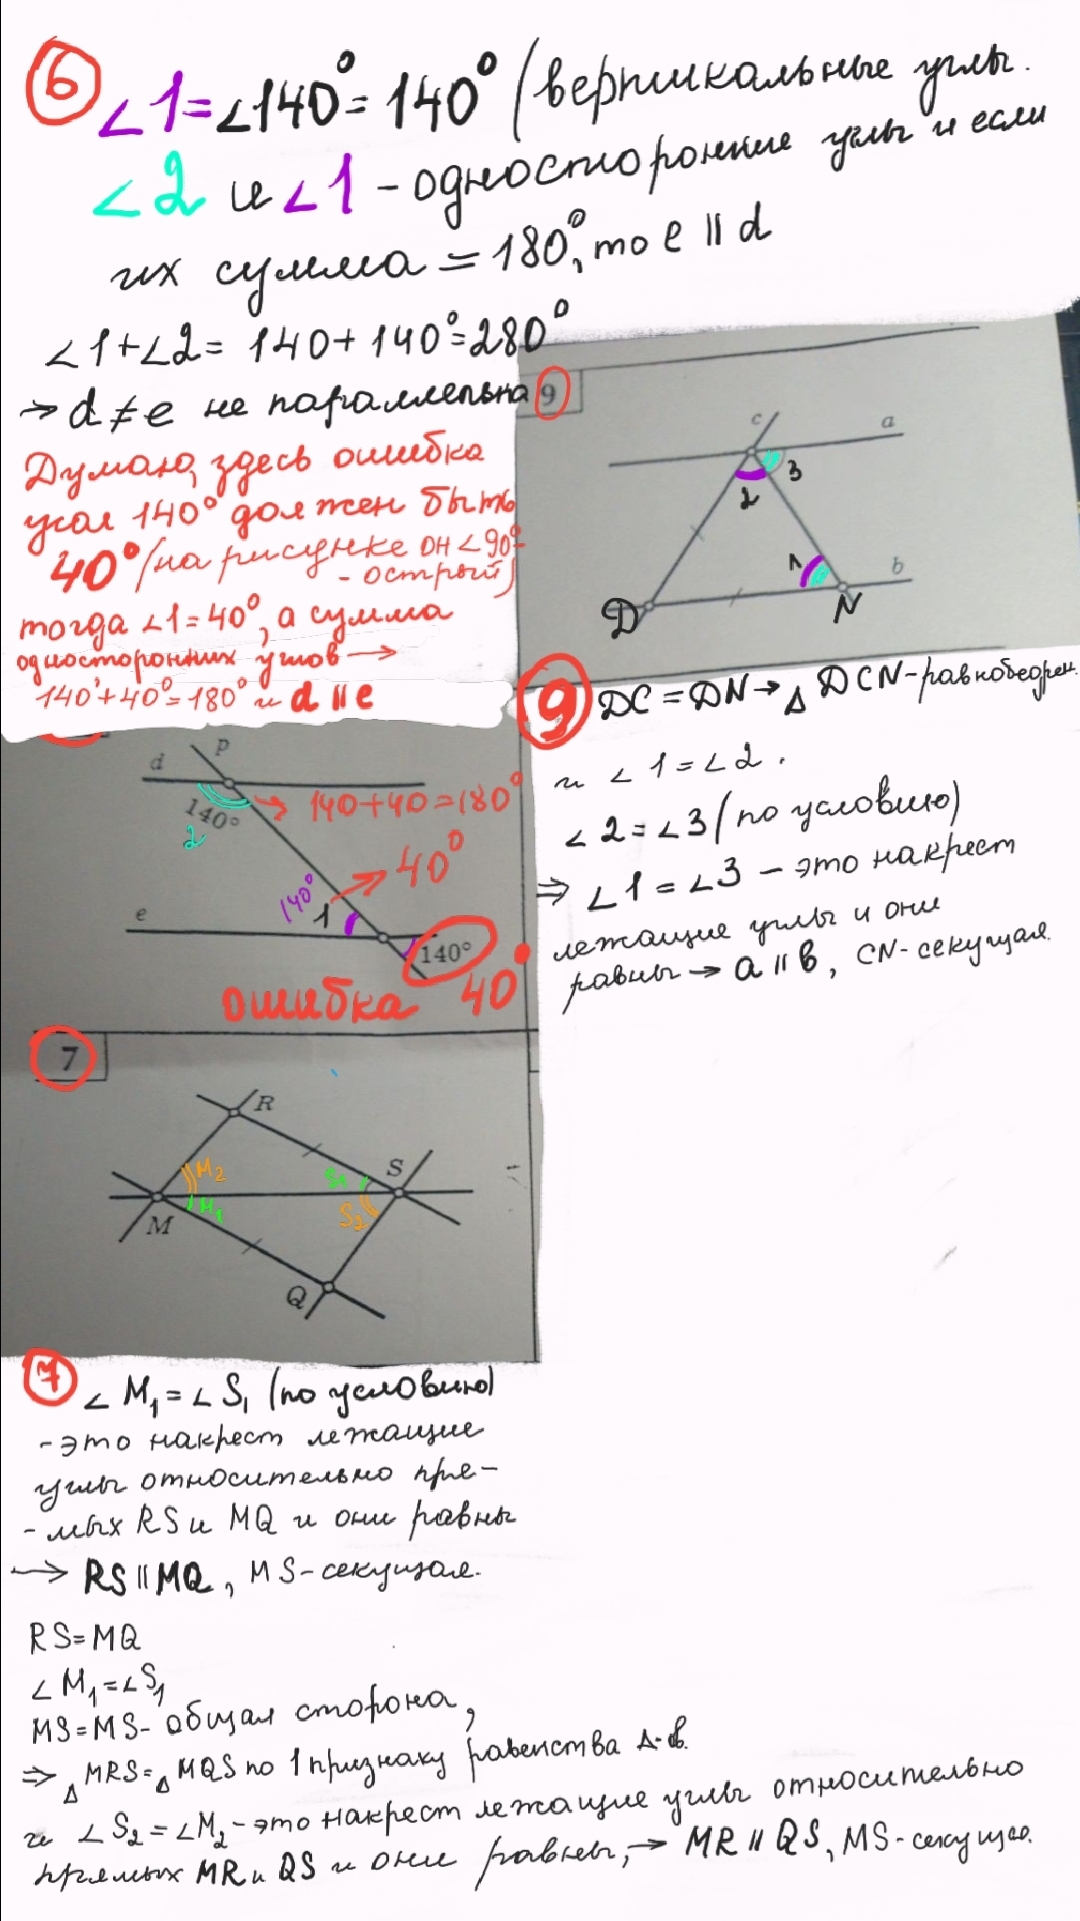 6
∠1=∠140°=140° (вертикальные углы.
∠2 и ∠1 - односторонние углы и если
их сумма = 180°, то e || d
∠1+∠2= 140+140°=280°
→ d ≠ e не параллельна
Думаю, здесь ошибка
угол 140° должен быть
40° (на рисунке он <90°-
- острый)
тогда ∠1=40°, а сумма
односторонних углов →
140°+40°=180° и d || e
9
c
a
3
2
1
b
D
N
p
d
140°
2
→ 140+40=180°
→ 40°
140°
1
e
140°
ошибка 40°
9 DC = DN → △ DCN-равнобедрен.
и ∠1=∠2.
∠2=∠3 (по условию)
⇒ ∠1=∠3 - это накрест
лежащие углы и они
равны → a || b, CN-секущая.
7
R
M2
S1
S
M1
S2
M
Q
7 ∠M1=∠S1 (по условию)
-это накрест лежащие
углы относительно пря-
-мых RS и MQ и они равны
→ RS || MQ, MS-секущая.
RS=MQ
∠M1=∠S1
MS=MS- общая сторона,
⇒ △MRS=△MQS по 1 признаку равенства △-в.
и ∠S2=∠M2-это накрест лежащие углы относительно
прямых MR и QS и они равны, → MR || QS, MS-секущ.